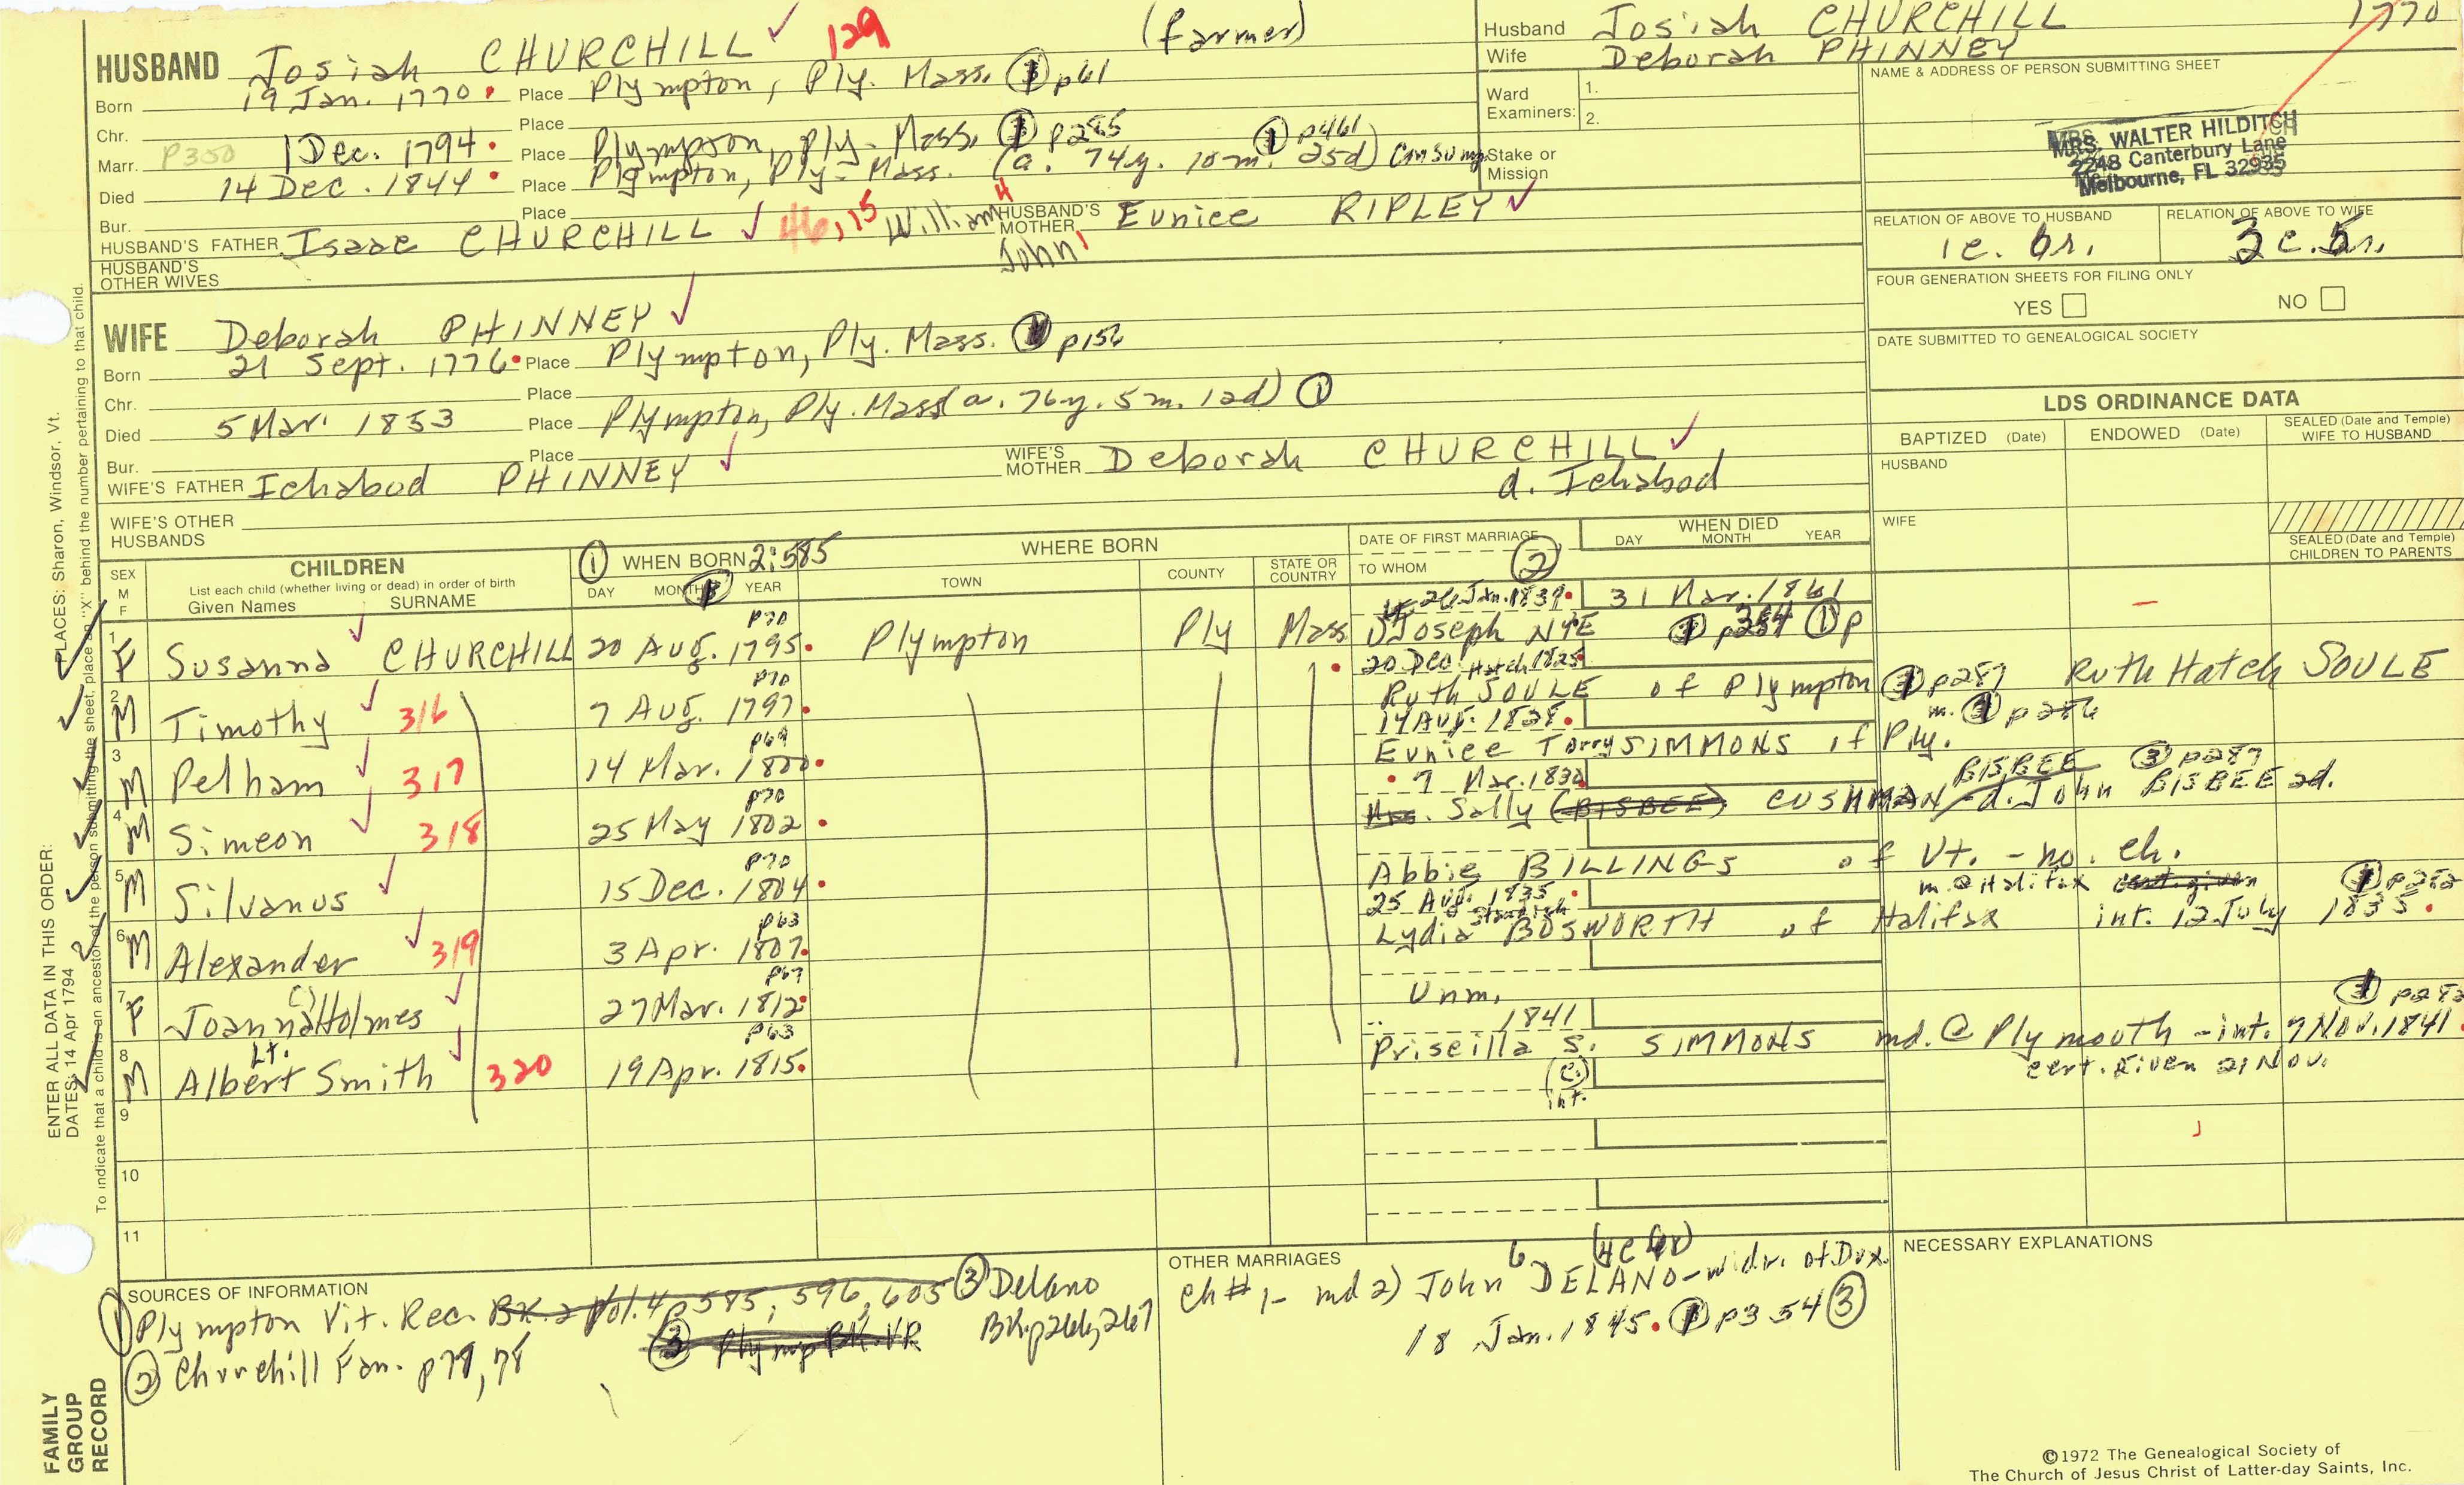 HUSBAND Josiah CHURCHILL 129 (farmer)
Born 19 Jan. 1770. Place Plympton, Ply. Mass. p61
Chr. Place
Marr. P350 1 Dec. 1794. Place Plympson, Ply- Mass. p285 1 p461
Died 14 Dec. 1844. Place Plympton, Ply- Mass. (a. 74y. 10m. 25d) Consump
Bur. Place
HUSBAND'S FATHER Isaac CHURCHILL 46,15 William4 John1 HUSBAND'S MOTHER Eunice RIPLEY
HUSBAND'S OTHER WIVES
Husband Josiah CHURCHILL 1770
Wife Deborah PHINNEY
Ward Examiners: 1.
2.
Stake or Mission
NAME & ADDRESS OF PERSON SUBMITTING SHEET
MRS. WALTER HILDITCH
2248 Canterbury Lane
Melbourne, FL 32935
RELATION OF ABOVE TO HUSBAND RELATION OF ABOVE TO WIFE
1c. 6r. 3c. 5r.
FOUR GENERATION SHEETS FOR FILING ONLY
YES NO
DATE SUBMITTED TO GENEALOGICAL SOCIETY
WIFE Deborah PHINNEY
Born 21 Sept. 1776. Place Plympton, Ply. Mass. p156
Chr. Place
Died 5 Mar. 1853 Place Plympton, Ply. Mass (a. 76y. 5m. 12d) 1
Bur. Place
WIFE'S FATHER Ichabod PHINNEY WIFE'S MOTHER Deborah CHURCHILL
d. Ichabod
WIFE'S OTHER HUSBANDS
LDS ORDINANCE DATA
BAPTIZED (Date) ENDOWED (Date) SEALED (Date and Temple) WIFE TO HUSBAND
HUSBAND
WIFE
SEALED (Date and Temple) CHILDREN TO PARENTS
SEX M F
CHILDREN
List each child (whether living or dead) in order of birth
Given Names SURNAME
1 WHEN BORN 2:585
DAY MONTH YEAR
WHERE BORN
TOWN COUNTY STATE OR COUNTRY
DATE OF FIRST MARRIAGE 2
TO WHOM
WHEN DIED
DAY MONTH YEAR
26 Jan. 1839. 31 Mar. 1861
1 F Susanna CHURCHILL p70 20 Aug. 1795. Plympton Ply Mass 1) Joseph NYE 1 p
20 Dec. 1825.
2 M Timothy 316 p70 7 Aug. 1797. Ruth Hatch SOULE of Plympton p287 Ruth Hatch SOULE
14 Aug. 1828. m. p286
3 M Pelham 317 p69 14 Mar. 1800. Eunice Torry SIMMONS of Ply.
7 Mar. 1830 BISBEE 3 p287
4 M Simeon 318 p70 25 May 1802. Mrs. Sally (BISBEE) CUSHMAN - d. John BISBEE 2d.
5 M Silvanus p70 15 Dec. 1804. Abbie BILLINGS of Vt. - no. ch.
25 Aug. 1835. m. @ Halifax cert. given
6 M Alexander 319 p63 3 Apr. 1807. Lydia Standish BOSWORTH of Halifax int. 12 July 1835.
7 F Joanna Holmes p67 27 Mar. 1812. Unm.
1841
8 M Lt. Albert Smith 320 p63 19 Apr. 1815. Priscilla S. SIMMONS md. @ Plymouth - int. 7 Nov. 1841.
(C.) int. cert. given 21 Nov.
9
10
11
SOURCES OF INFORMATION
1 Plympton Vit. Rec. Bk. 2 Vol. 4 p585, 596, 605 3 Delano
3 Plymp BK. VR BK. p266, 267
2 Churchill Fam. p77, 78
OTHER MARRIAGES
Ch #1- md 2) John DELANO - widr. of Dux.
18 Jan. 1845. p354 3
NECESSARY EXPLANATIONS
©1972 The Genealogical Society of
The Church of Jesus Christ of Latter-day Saints, Inc.
ENTER ALL DATA IN THIS ORDER:
DATES: 14 Apr 1794
PLACES: Sharon, Windsor, Vt.
To indicate that a child is an ancestor of the person submitting the sheet, place an "X" behind the number pertaining to that child.
FAMILY
GROUP
RECORD